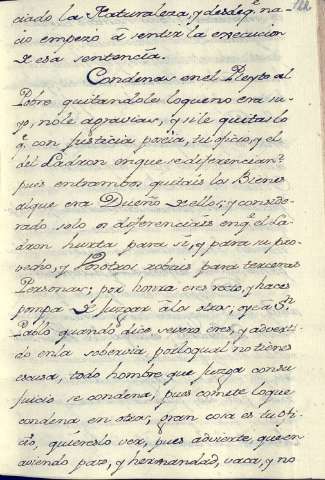 ciado la Naturaleza, y desde q.e na-
cio empezó á sentir la execucion
de esa sentencia.
Condenas en el Pleyto al
Pobre quitandole loque no era su-
yo, no le agravias, y si le quitas lo
q.e con justicia poseía, tu oficio, y el
del Ladron en que se diferencian?
pues entrambos quitais los Bienes
al que era Dueño de ellos; y conside-
rado solo os diferenciais en q.e el La-
dron hurta para sí, y para su pro-
vecho, y Vosotros robais para terceras
Personas; por honra eres recio, y haces
pompa de juzgar á los otros; oye á S.n
Pablo quando dice severo eres, y advertí-
do en la sobervia por lo qual no tienes
escusa, todo hombre que juzga con su
juicio se condena, pues comete loque
condena en otros; gran cosa es tu ofi-
cio, quiereslo ver, pues advierte, que en
aviendo paz, y hermandad, vaca, y no